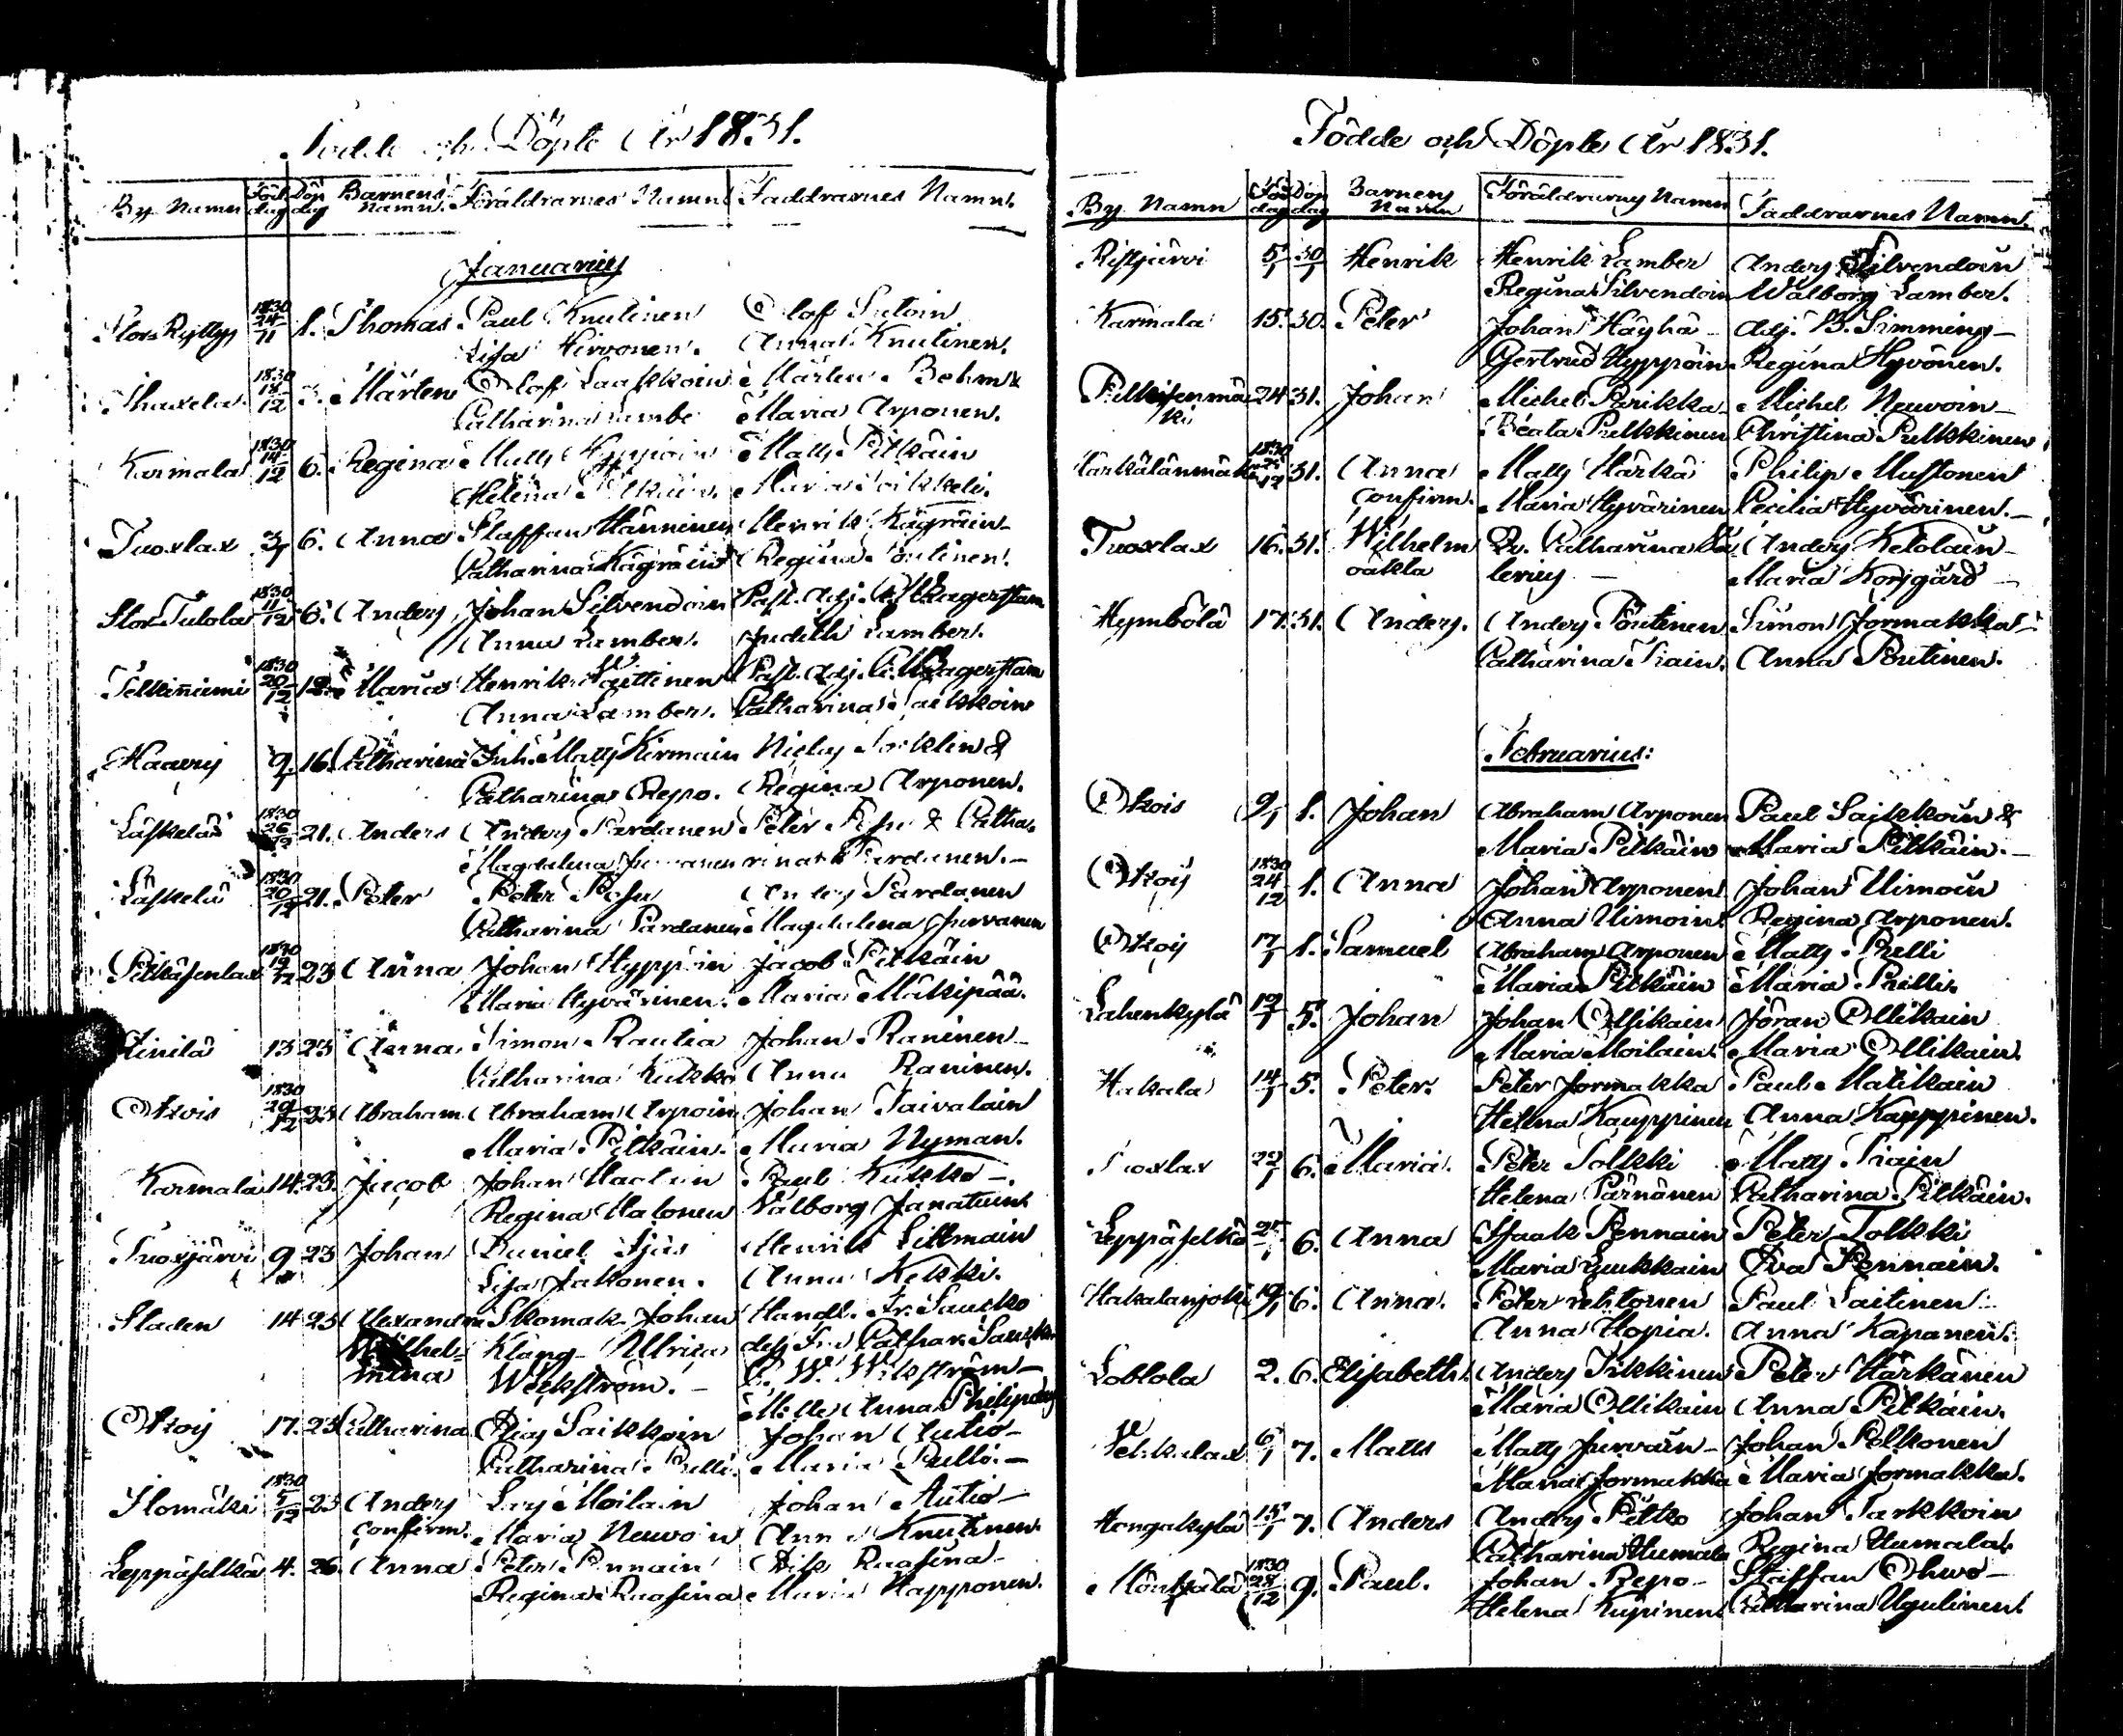 Födde och Döpte År 1831.
By Namn Föd dag Döp dag Barnens Namn. Föräldrarnes Namn Faddrarnes Namn.
Januarius
Stor Ryttyj 1830 24/11 1. Thomas Paul Knutinen Olof Sutoin
Lisa Hirvonen. Anna Knutinen.
Ihaxela 1830 18/12 Mårten Olof Laakkoin Mårten Behm &
Catharina Lambe Maria Arponen.
Karmala 1830 14/12 6. Regina Matts Hyppöin Matts Pitkäin
Helena Pitkäin. Maria
Tuoxlax 3/1 6. Anna Staffan Hänninen Henrik Kägräin
Catharina Kägräin Regina Poutinen.
Stor Tulola 1830 11/12 6. Anders Johan Silvendoin Past. Adj. Lagerstam
Anna Lamber. Judith Lamber.
Telkinniemi 1830 20/12 12. Maria Henrik Past. Adj. Lagerstam
Anna Lamber. Catharina Saikkoin
Haavus 9/1 16. Catharina Inh. Matts Kirmain Niclas &
Catharina Repo. Regina Arponen.
Läskelä 1830 26/12 21. Anders Anders Pardanen Peter Pesu & Catha
Magdalena rina Pardanen.
Läskelä 1830 20/12 21. Peter Peter Pesu Anders Pardanen
Catharina Pardanen Magdalena Jurvanen
Pitkäsenlax 1830 19/12 23 Anna Johan Hyppöin Jacob Pitkäin
Maria Hyvärinen. Maria Mäkipää.
Tinilä 13 23 Anna Simon Rautia Johan Raninen
Catharina Kukko Anna Raninen.
Otsois 1830 29/12 23 Abraham Abraham Arpoin Johan Taivalain
Maria Pitkäin. Maria Nyman.
Karmala 14. 23. Jacob Johan Paul Kukko
Regina Halonen Valborg Janatuin
Tuoxjärvi 9 23 Johan Daniel Sjös Henrik Littmain
Lisa Jakonen. Anna Kekki.
Staden 14 23 Alexandra Skomak. Johan Handl. Fr. Saucko
Wilhel- Klang Ulrica dess Fru Cathar. Sauck
mina Weckström. C. W. Wekström
Mlle Anna Philip
Otsois 17. 23 Catharina Elias Saikkoin Johan Autio
Catharina Pulli. Maria Pulli.
Ilomäki 1830 5/12 23 Anders Lars Moilain Johan Autio
confirm. Maria Neuvoin Anna Knutinen
Leppäselkä 4. 26. Anna Peter Pennain Erik Ruasina
Regina Ruasina Maria Happonen.
Födde och Döpte År 1831.
By Namn Föd dag Döp dag Barnens Namn Föräldrarnes Namn Faddrarnes Namn.
Ristjärvi 5/1 30/1 Henrik Henrik Lamber Anders Silvendoin
Regina Silvendoin Walborg Lamber.
Karmala 15. 30. Peter Johan Häyhä Adj. B. Simming
Gertrud Hyppöin Regina Hyvönen.
Pelkisenmä 24 31. Johan Michel Parikka Michel Neuvoin
ki Beata Pulkkinen Christina Pulkkinen
Härkälänmäki 1830 /12 31. Anna Matts Härkä Philip Mustonen
confirm. Maria Hyvärinen Cecilia Hyvärinen.
Tuoxlax 16. 31. Wilhelm Catharina Anders Ketolain
oäkta lerius Maria Korsgård
Hymbölä 17. 31. Anders. Anders Poutinen Simon Jormakka
Catharina Train. Anna Poutinen.
Februarius:
Otsois 9/1 1. Johan Abraham Arponen Paul Saikkoin &
Maria Pitkäin Maria Pitkäin.
Otsois 1830 24/12 1. Anna Johan Arponen Johan Uimoin
Anna Uimoin Regina Arponen.
Otsois 17/1 1. Samuel Abraham Arponen Matts Prelli
Maria Pitkäin Maria Prelli.
Lahenkylä 19/1 5. Johan Johan Ollikain Jöran Ollikain
Maria Moilain. Maria Ollikain.
Hakala 14/1 5. Peter. Peter Jormakka Paul Matikain
Helena Kauppinen Anna Kauppinen.
Tuoxlax 22/1 6. Maria. Peter Tolkki Matts Train
Helena Pärnänen Catharina Pitkäin.
Leppäselkä 25/1 6. Anna Isaak Pennain Peter Tolkki
Maria Luukkain Eva Pennain.
Hakalanjoki 19/1 6. Anna. Peter Lehtonen Paul Laitinen
Anna Hopia. Anna Kapanen.
Loblola 2. 6. Elisabeth. Anders Ikkinen Peter Härkänen
Maria Ollikain Anna Pitkäin.
6/1 7. Matts Matts Jurvain Johan Polkonen
Maria Jormakka Maria Jormakka.
Hongakylä 15/1 7. Anders Anders Pitko Johan Tarkkoin
Catharina Humala Regina Humala.
Möntsälä 1830 28/12 9. Paul. Johan Repo Staffan Ohwo
Helena Kupinen Catharina Ugulinen.